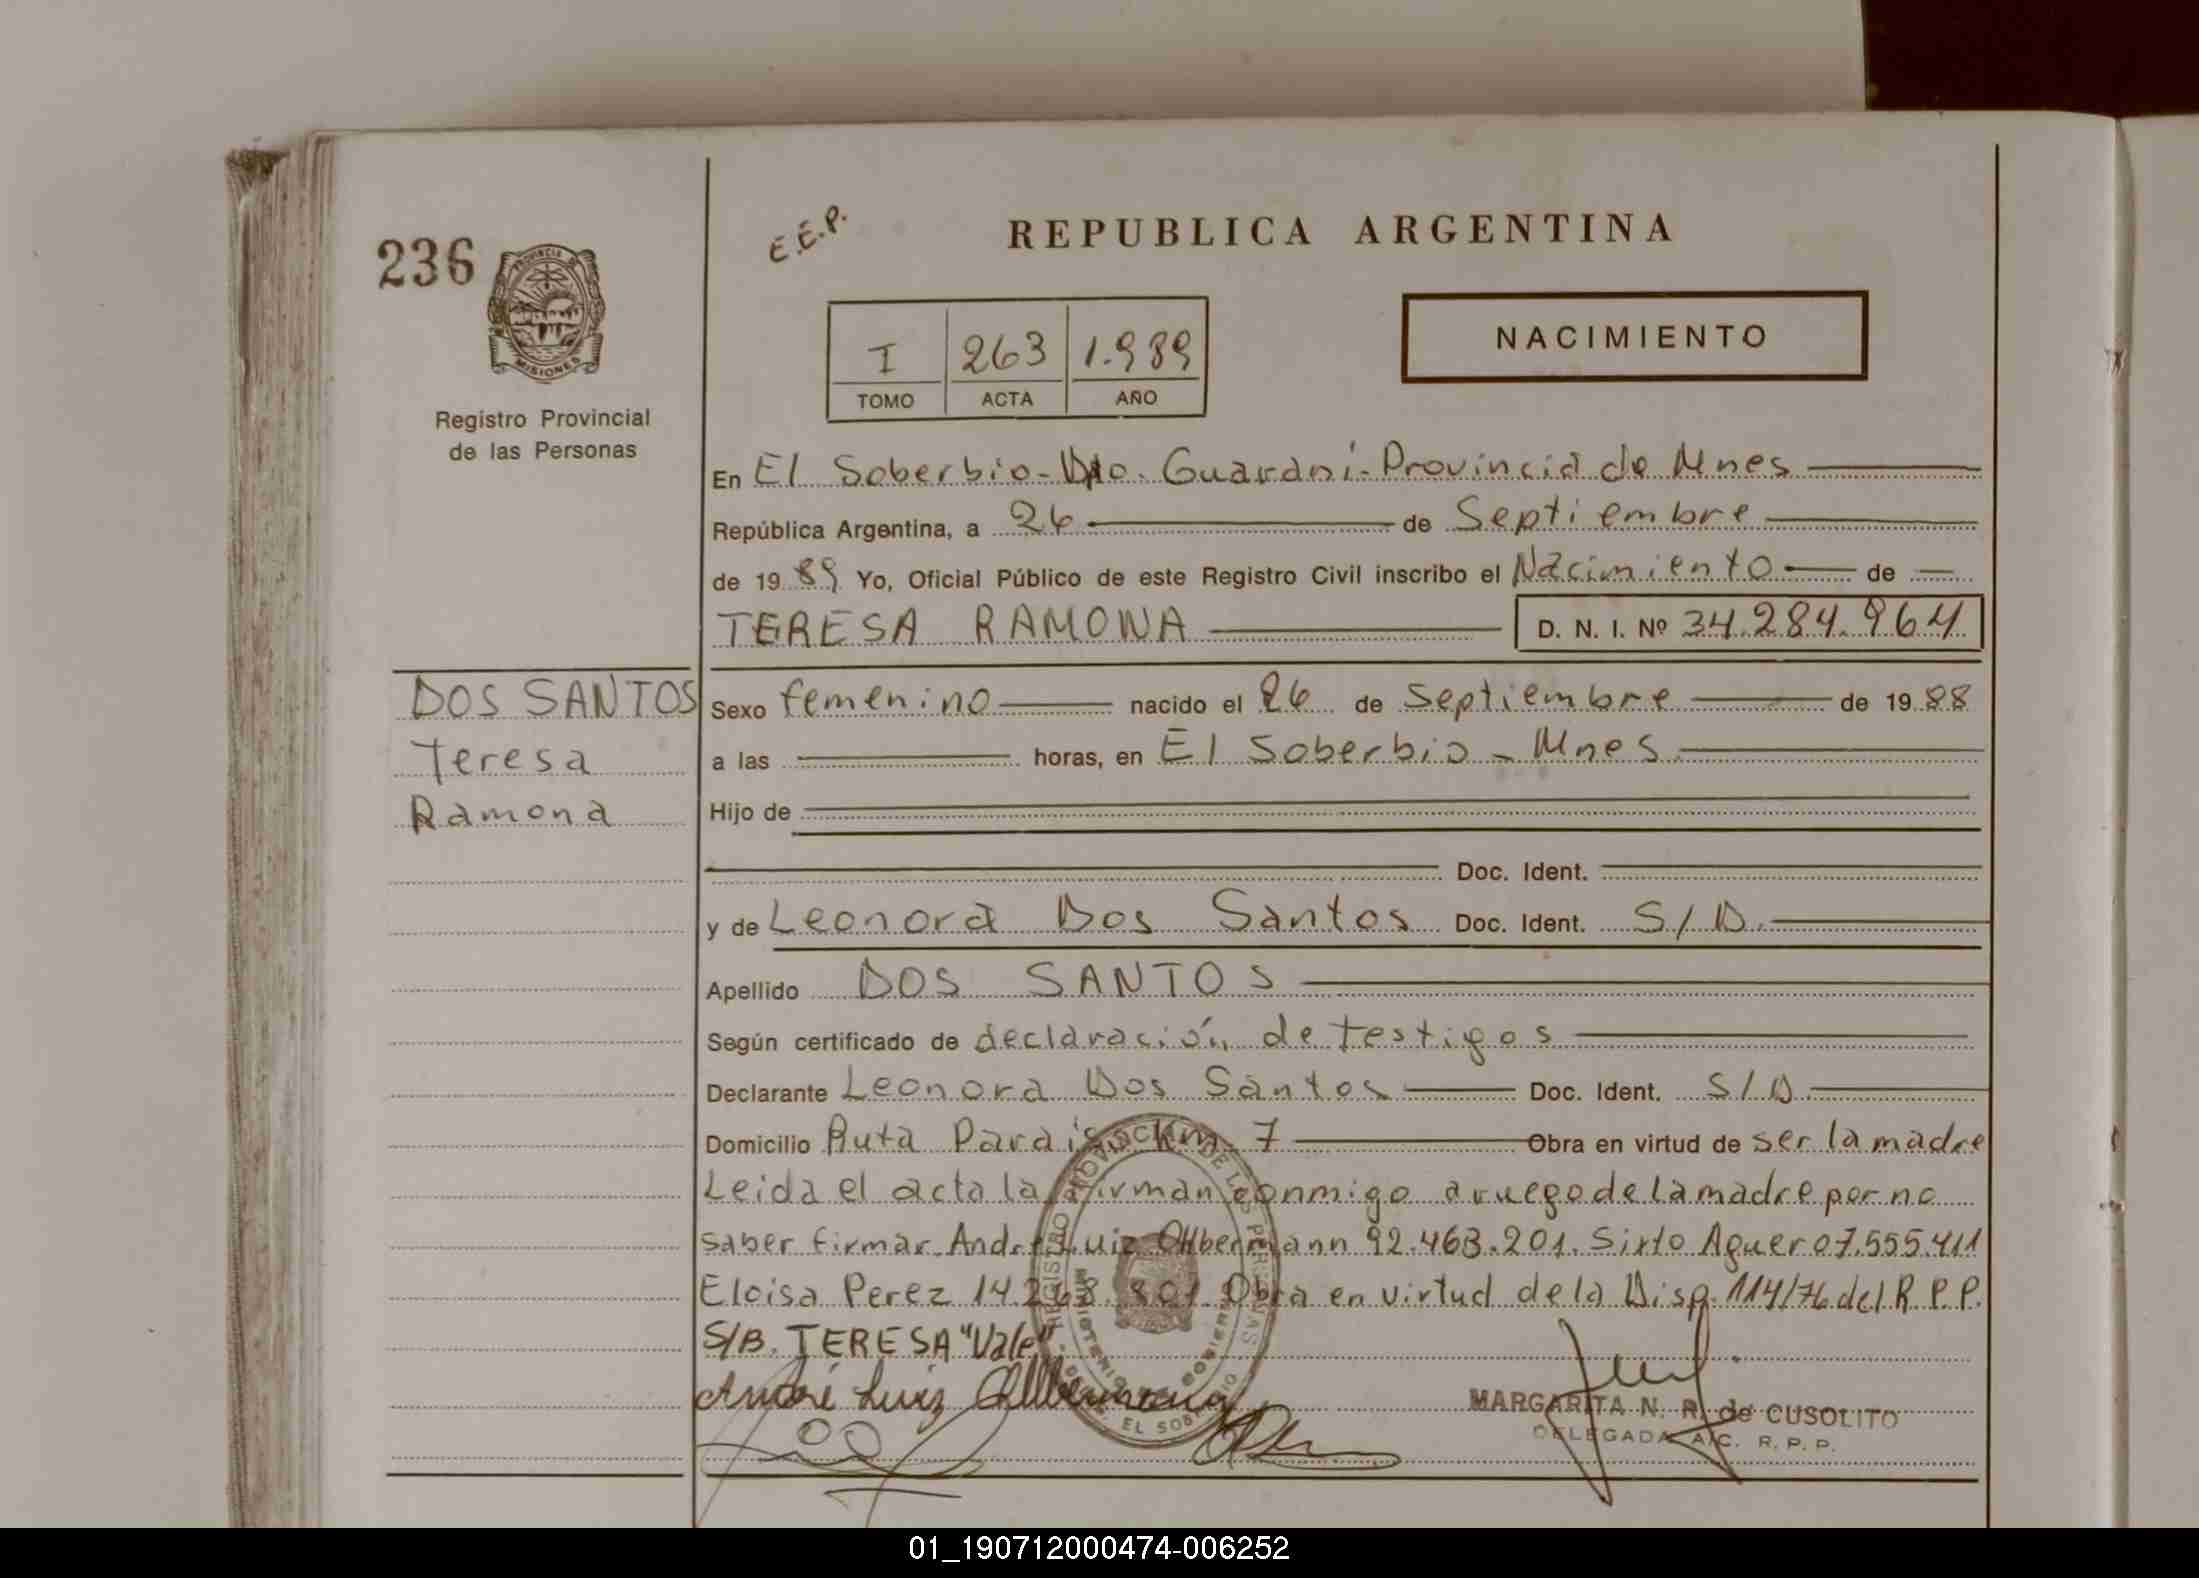 236
PROVINCIA DE
MISIONES
Registro Provincial
de las Personas
E.E.P.
REPUBLICA ARGENTINA
I 263 1.989
TOMO ACTA AÑO
NACIMIENTO
En El Soberbio-Dto. Guaraní-Provincia de Mnes
República Argentina, a 26 de Septiembre
de 19 89 Yo, Oficial Público de este Registro Civil inscribo el Nacimiento de
TERESA RAMONA D. N. I. Nº 34.284.964
DOS SANTOS
Teresa
Ramona
Sexo femenino nacido el 26 de Septiembre de 19 88
a las horas, en El Soberbio - Mnes.
Hijo de
Doc. Ident.
y de Leonora Dos Santos Doc. Ident. S/D.
Apellido DOS SANTOS
Según certificado de declaración de testigos
Declarante Leonora Dos Santos Doc. Ident. S/D.
Domicilio Ruta Paraiso Km. 7 Obra en virtud de ser la madre
Leida el acta la firman conmigo a ruego de la madre por no
saber firmar Andre Luiz Ollbermann 92.463.201. Sixto Aguero 7.555.411
Eloisa Perez 14.268.801 Obra en virtud de la Disp. 114/76 del R.P.P.
S/B. TERESA "Vale"
André Luiz Ollbermann
REGISTRO PROVINCIAL DE LAS PERSONAS
MINISTERIO DE GOBIERNO
EL SOBERBIO
MARGARITA N. R. de CUSOLITO
DELEGADA A/C. R. P. P.
01_190712000474-006252